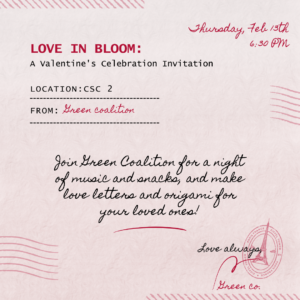 Thursday, Feb 13th
6:30 PM
LOVE IN BLOOM:
A Valentine's Celebration Invitation
LOCATION:CSC 2
FROM: Green coalition
Join Green Coalition for a night
of music and snacks, and make
love letters and origami for
your loved ones!
Love always,
Green Co.